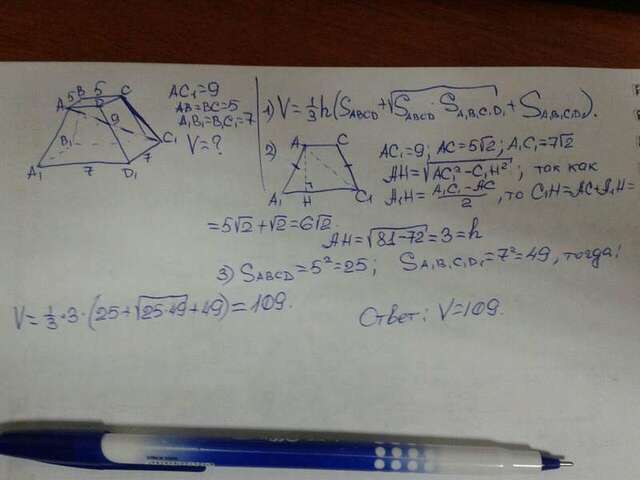 AC₁=9
AB=BC=5
A₁B₁=B₁C₁=7
V=?
A B 5 5 C D 9 B₁ C₁ A₁ 7 7 D₁
1) V=⅓h(S_ABCD+√(S_ABCD·S_A₁B₁C₁D₁)+S_A₁B₁C₁D₁).
2)
A C A₁ H C₁
AC₁=9; AC=5√2; A₁C₁=7√2
AH=√(AC₁²-C₁H²); так как
A₁H=(A₁C₁-AC)/2, то C₁H=AC+A₁H=
=5√2+√2=6√2.
AH=√(81-72)=3=h
3) S_ABCD=5²=25; S_A₁B₁C₁D₁=7²=49, тогда:
V=⅓·3·(25+√(25·49)+49)=109.
Ответ: V=109.